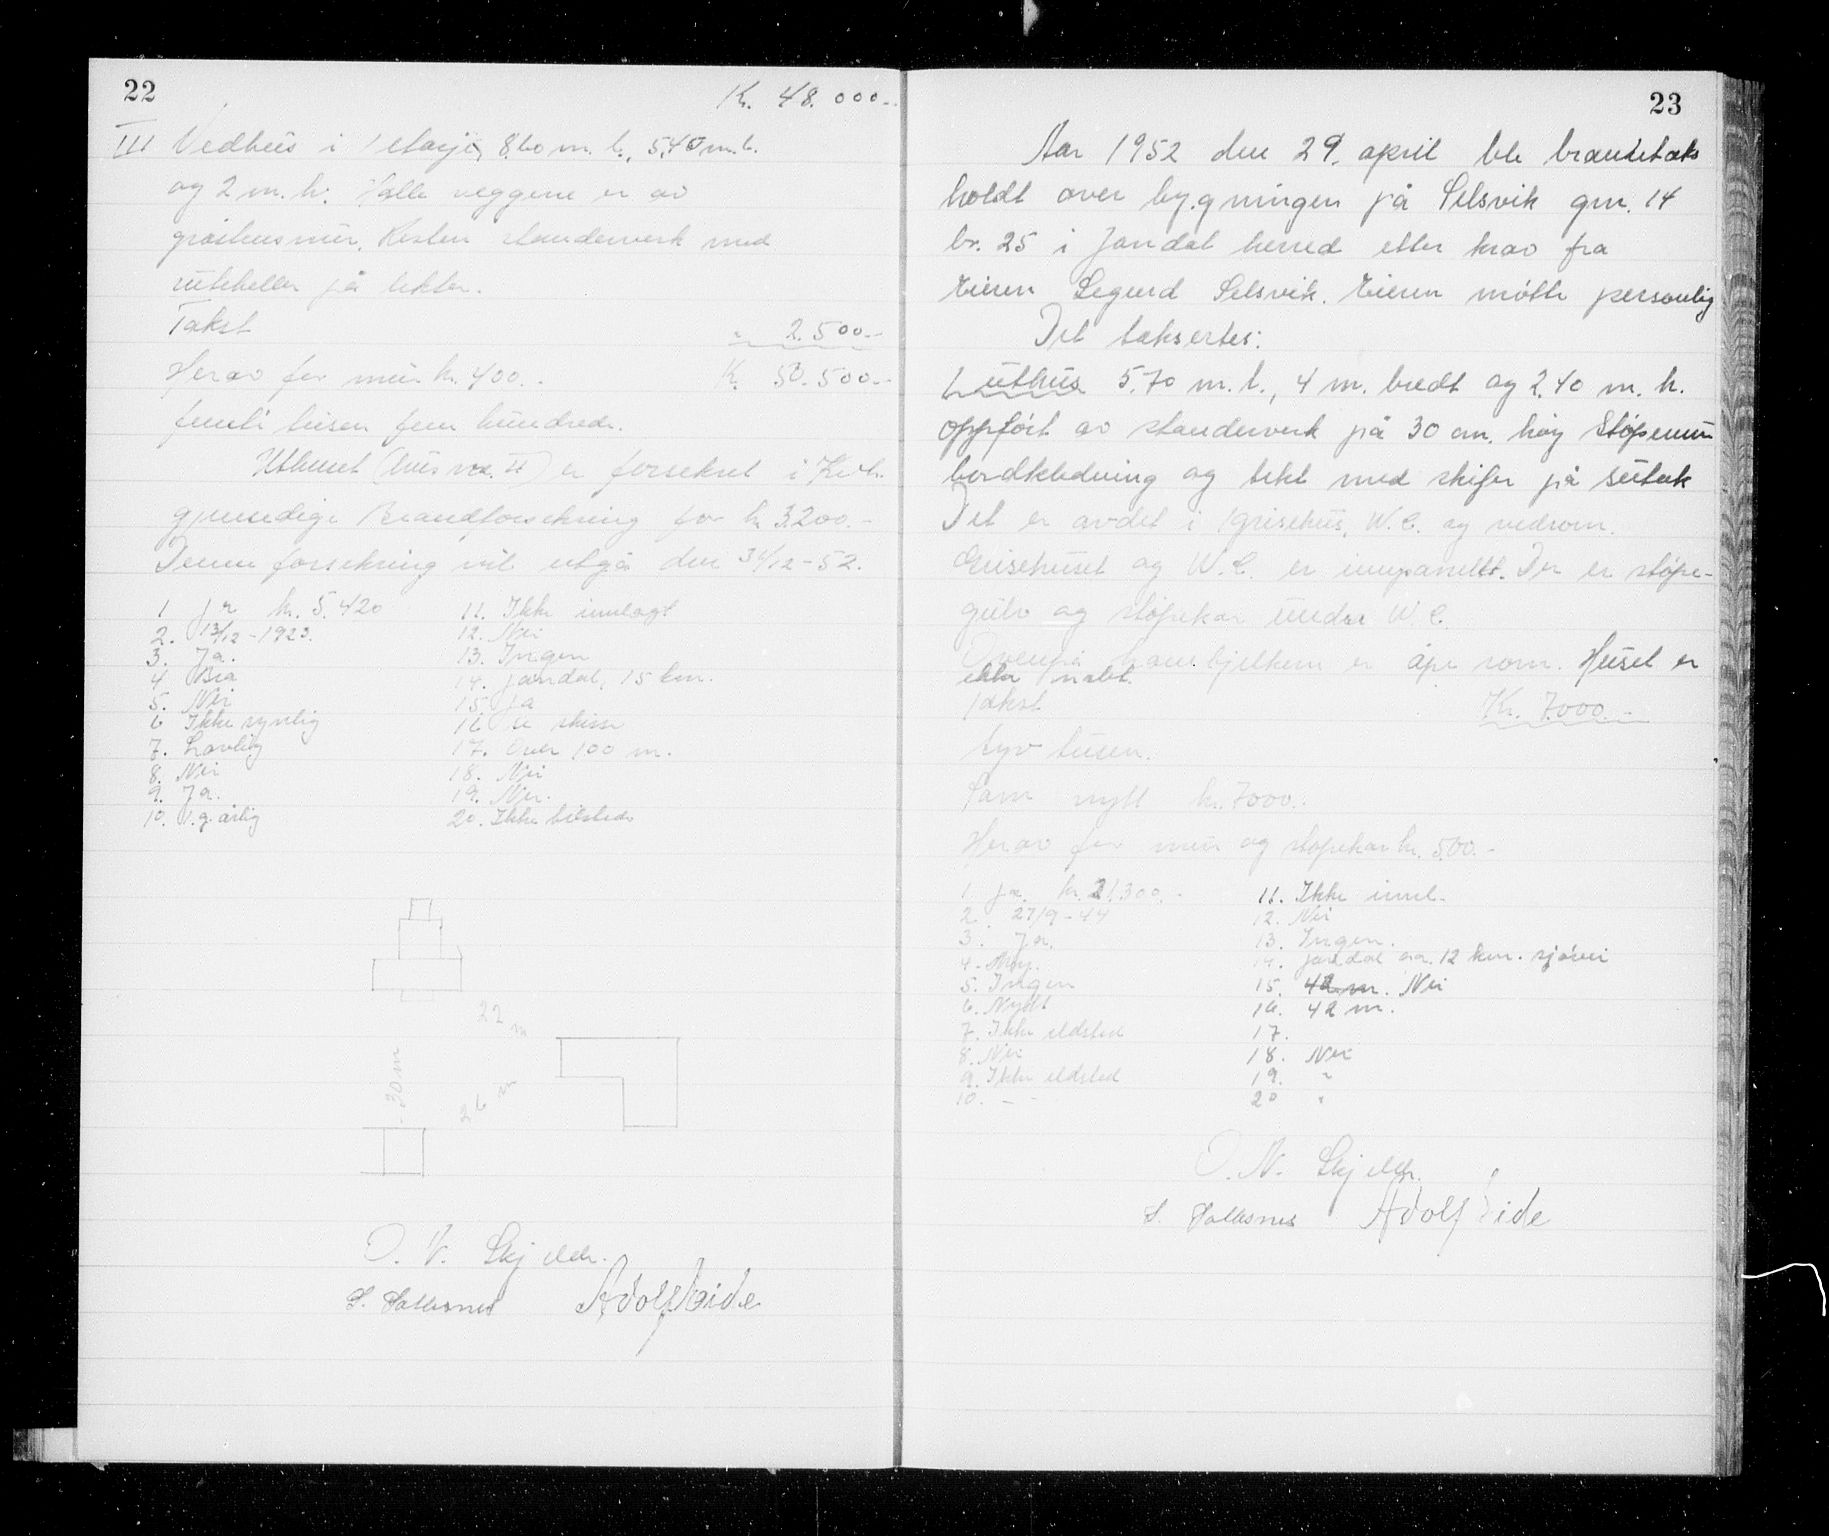 22
Kr. 48.000.-
III Vedhus i 1 etasje, 8.60 m. l., 5,40 m. b.
og 2 m. h. Halle veggene er av
gråsteinsmur. Resten standerverk med
ruteheller på lekter.
Takst " 2.500.-
Herav for mur kr. 400.- Kr. 50.500.-
femti tusen fem hundrede.
Uthuset (hus nr. II) er forsikret i
gjensidige Brandforsikring for kr 3200.-
Denne forsikring vil utgå den 31/12-52.
1 Ja kr. 5.420
2. 13/12-1923.
3. Ja.
4 Bra
5. Nei
6 Ikke synlig
7. Lovlig
8. Nei
9. Ja.
10. 1 g. årlig
11. Ikke innlagt
12. Nei
13. Ingen
14. Jondal, 15 km.
15. Ja
16 Se skisse
17. Over 100 m.
18. Nei
19. Nei.
20. Ikke tilstede
22 m
30 m
26 m
O. N. Skjeldr.
S. Solesnes Adolf Eide
23
Aar 1952 den 29. april ble brandtakst
holdt over bygningen på Selsvik gnr. 14
br. 25 i Jondal herred etter krav fra
Eieren Sigurd Selsvik. Eieren møtte personlig
Det taksertes:
1 uthus 5.70 m. l., 4 m. bredt og 2.40 m. h.
oppført av standerverk på 30 cm. høy støpemur
bordkledning og tekt med skifer på sutak
Det er avdelt i grisehus, W.C. og vedrom.
Grisehuset og W.C. er innpanelt. Der er støpe-
gulv og støpekar under W.C.
Ovenpå hanebjelken er åpe rom. Huset er
ikke malt.
Takst Kr. 7000.-
syv tusen.
Som nytt kr. 7000.-
Herav for mur og støpekar kr. 500.-
1. Ja. kr. 21.300.-
2. 27/9-44
3. Ja.
4. Ny.
5. Ingen
6. Nytt
7. Ikke ildsted
8. Nei
9. Ikke ildsted
10. - -
11. Ikke innl.
12. Nei
13. Ingen.
14. Jondal ca. 12 km. sjøvei
15. 42 m. Nei
16. 42 m.
17.
18. Nei
19. "
20 "
O. N. Skjeldr.
S. Solesnes Adolf Eide